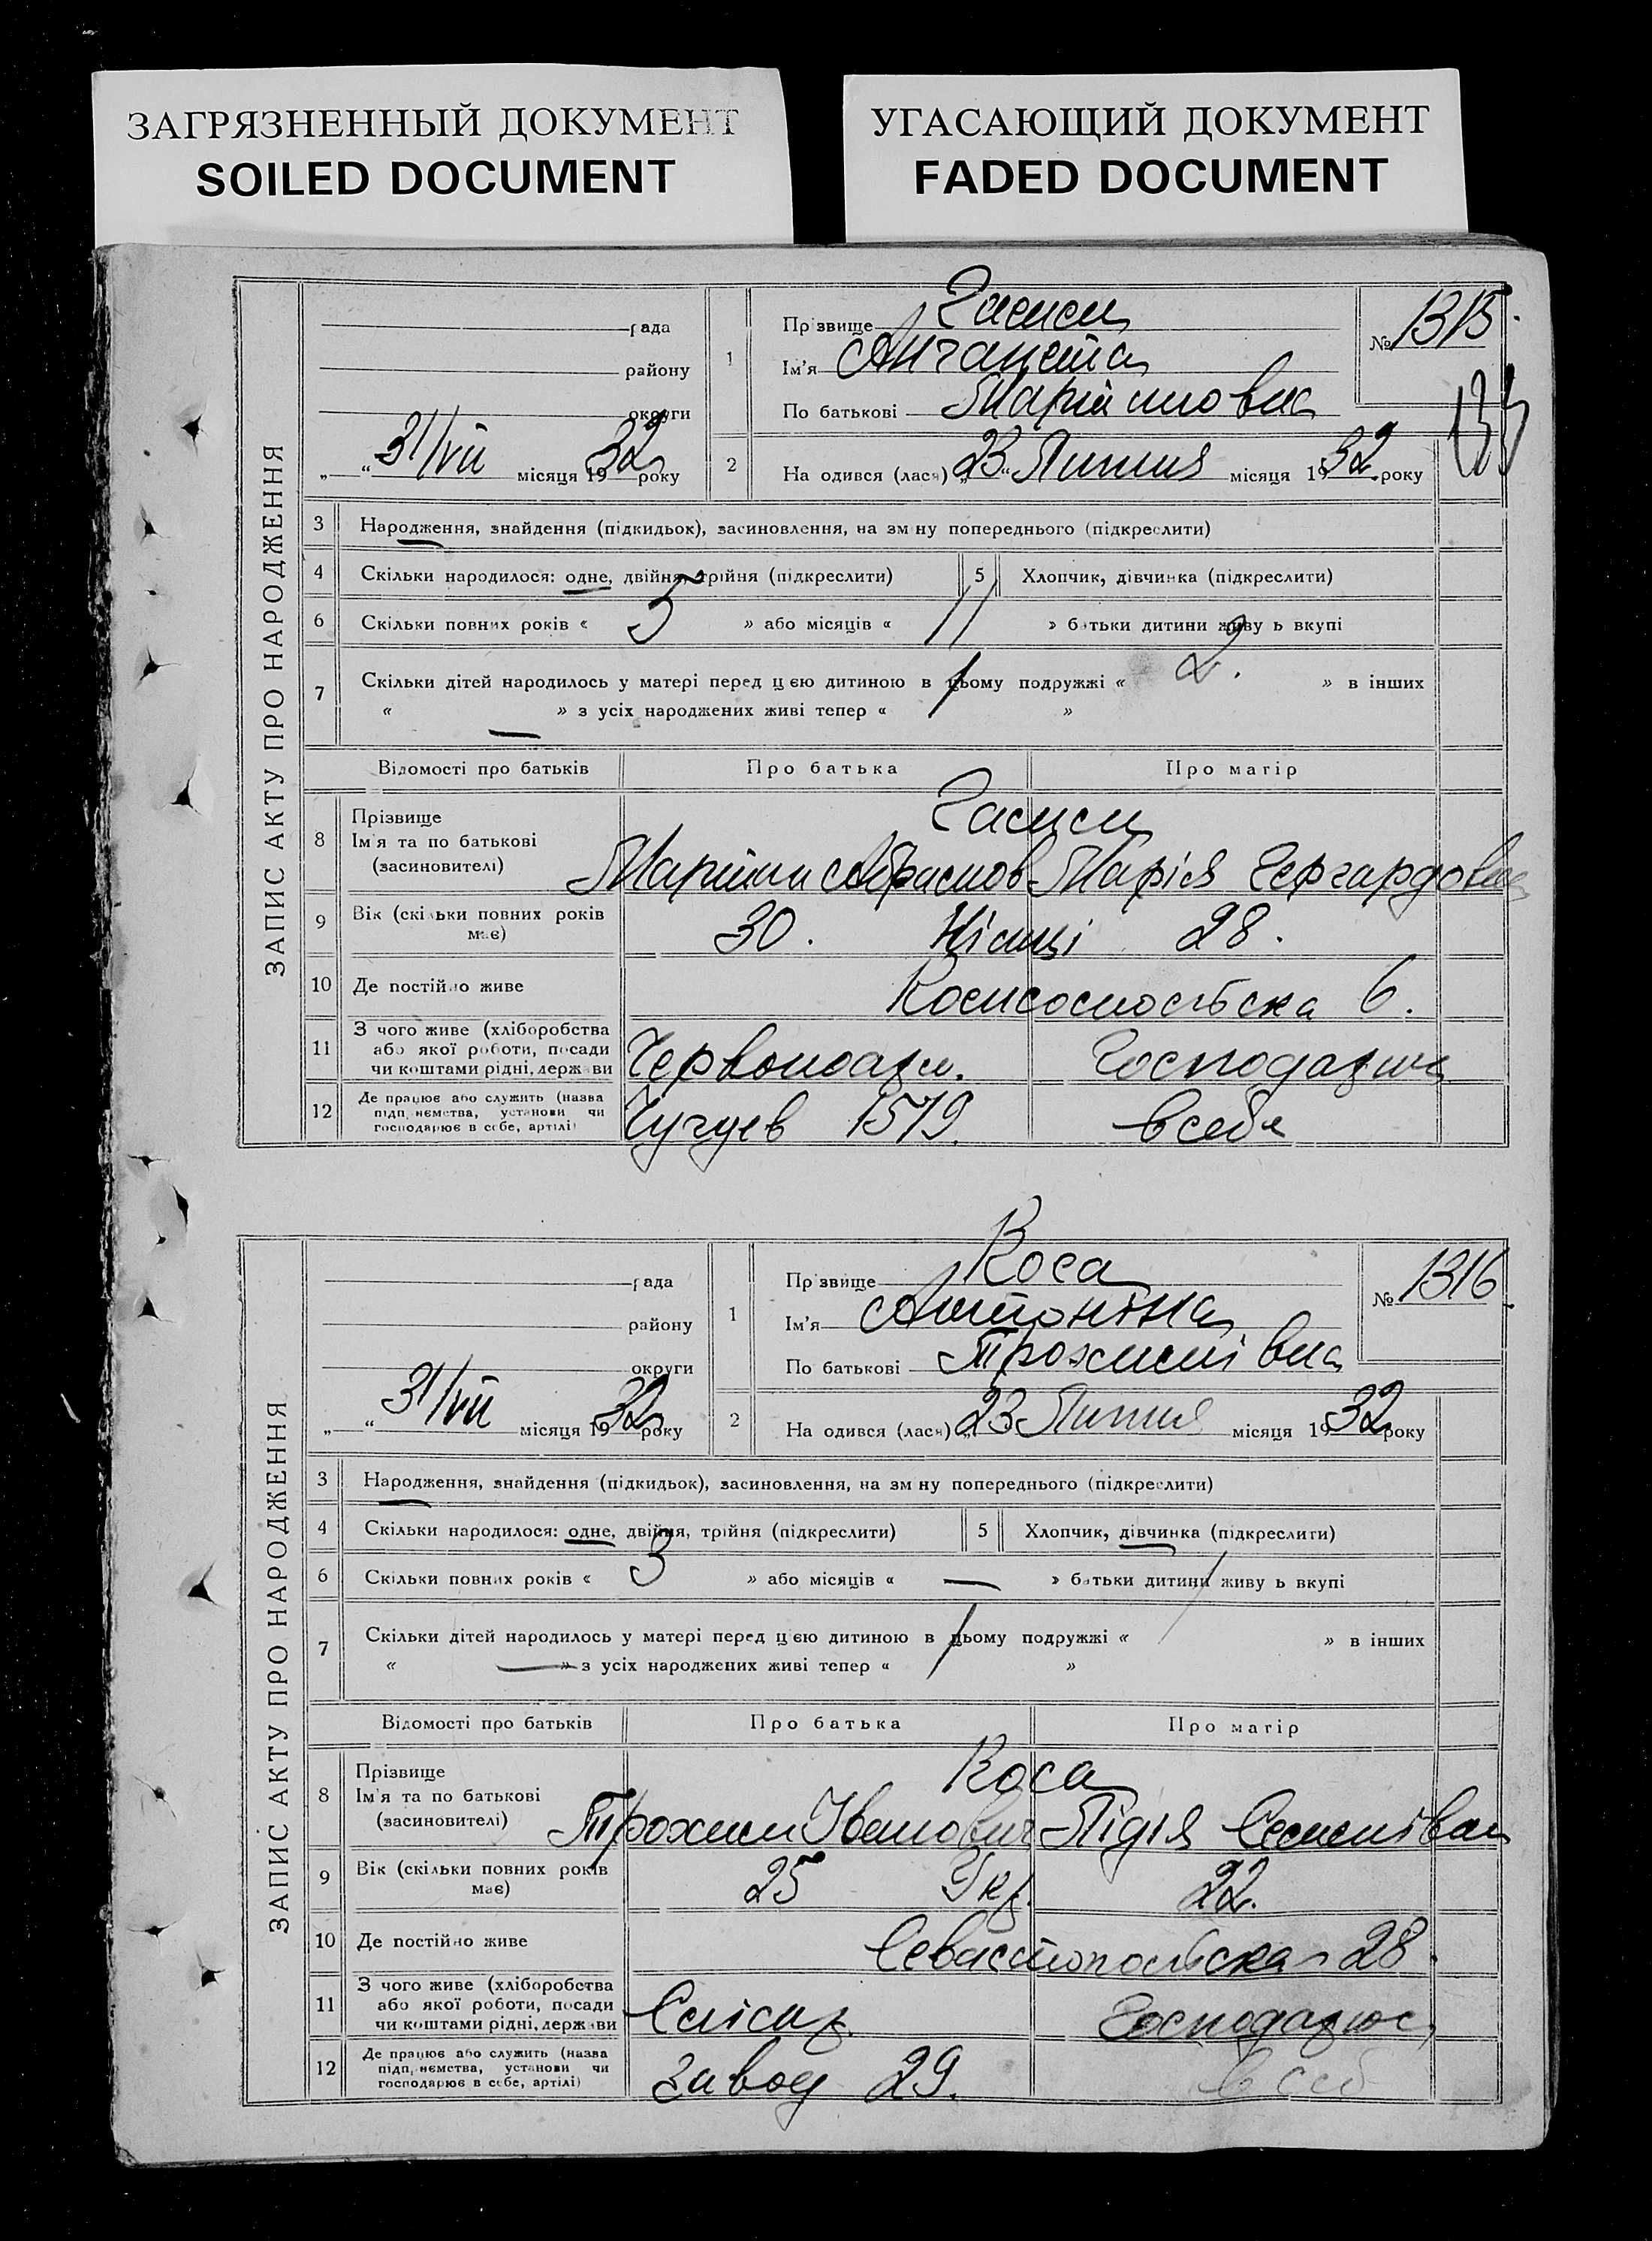 ЗАГРЯЗНЕННЫЙ ДОКУМЕНТ
SOILED DOCUMENT
УГАСАЮЩИЙ ДОКУМЕНТ
FADED DOCUMENT
ЗАПИС АКТУ ПРО НАРОДЖЕННЯ
рада
району
округи
„ “ 31/VII місяця 1932 року
1
Прізвище
Ім'я
По батькові
№ 1315.
133
2 На одився (лася) „23“ Липня місяця 1932 року
3 Народження, знайдення (підкидьок), засиновлення, на зм ну попереднього (підкреслити)
4 Скільки народилося: одне, двійня, трійня (підкреслити) 5 Хлопчик, дівчинка (підкреслити)
6 Скільки повних років « 5 » або місяців « » батьки дитини живу ь вкупі
7 Скільки дітей народилось у матері перед цією дитиною в цьому подружжі « 2. » в інших
« — » з усіх народжених живі тепер « »
Відомості про батьків Про батька Про матір
8 Прізвище
Ім'я та по батькові
(засиновителі)
Абрамов Марія Гергардовна
9 Вік (скільки повних років має) 30. Німці 28.
10 Де постійно живе Комсомольська 6.
11 З чого живе (хліборобства
або якої роботи, посади
чи коштами рідні, держави
Червоноарм. Господарка
12 Де працює або служить (назва
підприємства, установи чи
господарює в себе, артілі)
Чугуев 1519. в себе
ЗАПИС АКТУ ПРО НАРОДЖЕННЯ
рада
району
округи
„ “ 31/VII місяця 1932 року
1
Прізвище Коса
Ім'я Антоніна
По батькові Трохимівна
№ 1316.
2 На одився (лася) „23 Липня місяця 1932 року
3 Народження, знайдення (підкидьок), засиновлення, на зм ну попереднього (підкреслити)
4 Скільки народилося: одне, двійня, трійня (підкреслити) 5 Хлопчик, дівчинка (підкреслити)
6 Скільки повних років « 3 » або місяців « — » батьки дитини живу ь вкупі
7 Скільки дітей народилось у матері перед цією дитиною в цьому подружжі « » в інших
« — » з усіх народжених живі тепер « »
Відомості про батьків Про батька Про матір
8 Прізвище
Ім'я та по батькові
(засиновителі)
Коса
Трохим Іванович Лідія Семенівна
9 Вік (скільки повних років має) 25 Укр. 22.
10 Де постійно живе Севастопольська 28.
11 З чого живе (хліборобства
або якої роботи, посади
чи коштами рідні, держави
Слюсар. Господарює
12 Де працює або служить (назва
підприємства, установи чи
господарює в себе, артілі)
Завод 29. в себ